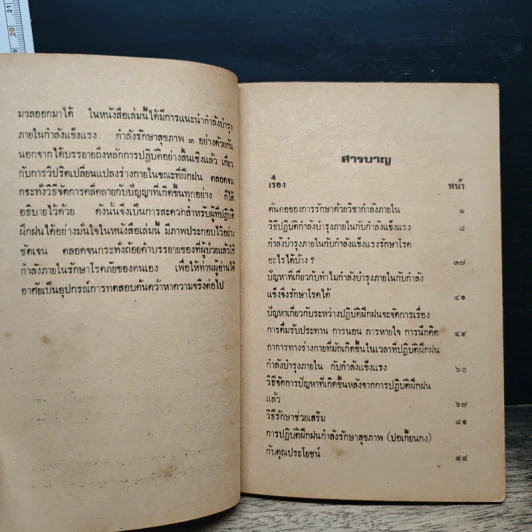 มวลออกมาได้ ในหนังสือเล่มนี้ได้มีการแนะนำกำลังบำรุง
ภายในกำลังแข็งแรง กำลังรักษาสุขภาพ ๓ อย่างด้วยกัน
นอกจากได้บรรยายถึงหลักการปฏิบัติอย่างสิ้นเชิงแล้ว เกี่ยว
กับการวิปริตเปลี่ยนแปลงร่างกายในขณะที่ฝึกฝน ตลอดจน
กระทั่งวิธีจัดการคลี่คลายกับปัญหาที่เกิดขึ้นทุกอย่าง ก็ได้
อธิบายไว้ด้วย ดังนั้นจึงเป็นการสะดวกสำหรับผู้ที่ปฏิบัติ
ฝึกฝนได้อย่างมั่นใจในหนังสือเล่มนี้ มีภาพประกอบไว้อย่าง
ชัดเจน ตลอดจนกระทั่งถ้อยคำบรรยายของที่ผู้ป่วยแล้วใช้
กำลังภายในรักษาโรคภัยของตนเอง เพื่อให้ท่านผู้อ่านได้
อาศัยเป็นอุปกรณ์การทดสอบค้นคว้าหาความจริงต่อไป
สารบาญ
เรื่อง หน้า
ต้นตอของการรักษาด้วยวิชากำลังภายใน ๑
วิธีปฏิบัติกำลังบำรุงภายในกับกำลังแข็งแรง ๘
กำลังบำรุงภายในกับกำลังแข็งแรงรักษาโรค
อะไรได้บ้าง ? ๓๗
ปัญหาที่เกี่ยวกับทำไมกำลังบำรุงภายในกับกำลัง
แข็งจึงรักษาโรคได้ ๔๑
ปัญหาเกี่ยวกับระหว่างปฏิบัติฝึกฝนจะจัดการเรื่อง
การดื่มรับประทาน การนอน การหายใจ การนึกคิด ๔๙
อาการทางร่างกายที่มักเกิดขึ้นในเวลาที่ปฏิบัติฝึกฝน
กำลังบำรุงภายใน กับกำลังแข็งแรง ๖๐
วิธีจัดการปัญหาที่เกิดขึ้นหลังจากการปฏิบัติฝึกฝน
แล้ว ๖๗
วิธีรักษาช่วยเสริม ๘๑
การปฏิบัติฝึกฝนกำลังรักษาสุขภาพ (ปอเกี้ยนกง)
กับคุณประโยชน์ ๘๘